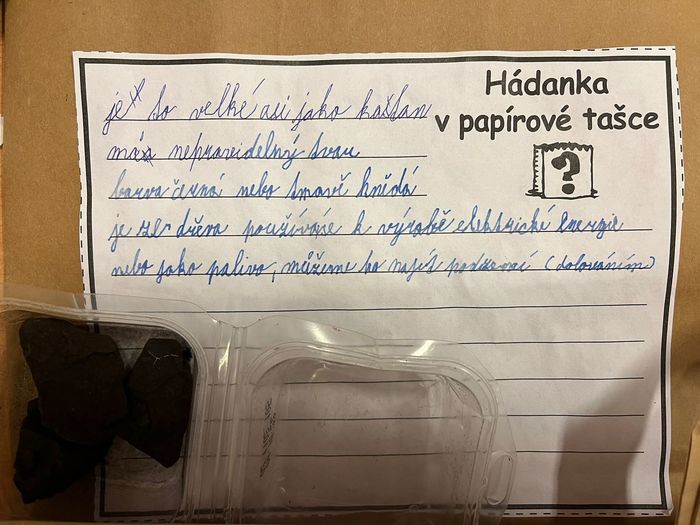 Hádanka
v papírové tašce
?
je to velké asi jako kaštan
má nepravidelný tvar
barva černá nebo tmavě hnědá
je ze dřeva používáme k výrobě elektrické energie
nebo jako palivo, můžeme ho najít podzemí (dolováním)